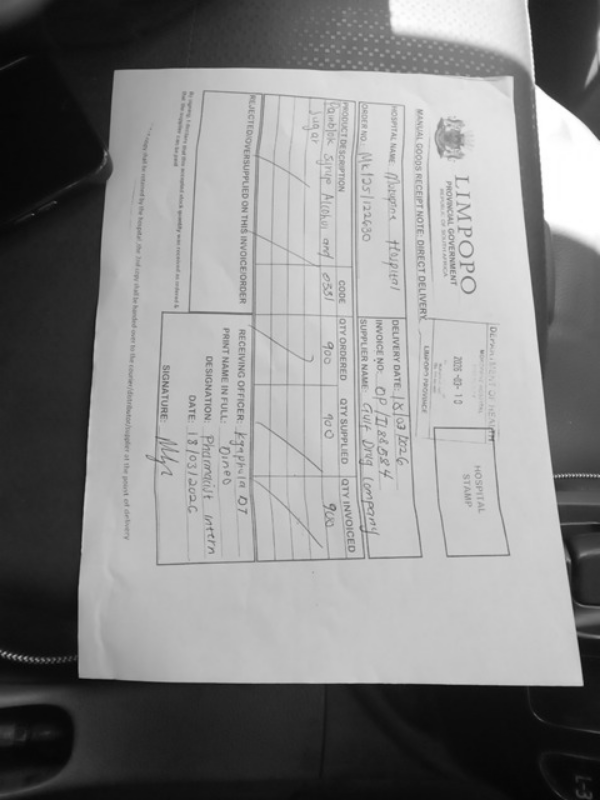 LIMPOPO
PROVINCIAL GOVERNMENT
REPUBLIC OF SOUTH AFRICA
DEPARTMENT OF HEALTH
2026 -03- 18
LIMPOPO PROVINCE
HOSPITAL
STAMP
MANUAL GOODS RECEIPT NOTE: DIRECT DELIVERY
HOSPITAL NAME: Hospital
DELIVERY DATE: 18/03/2026
INVOICE NO: OP/I188584
ORDER NO: MK/25/122630
SUPPLIER NAME: Gulf Drug Company
PRODUCT DESCRIPTION CODE QTY ORDERED QTY SUPPLIED QTY INVOICED
Painblok Syrup Alcohol and 0331 900 900 900
Sugar
REJECTED/OVERSUPPLIED ON THIS INVOICE/ORDER
RECEIVING OFFICER: Kgaphola DT
PRINT NAME IN FULL: Dineo
DESIGNATION: Pharmacist Intern
DATE: 18/03/2026
SIGNATURE:
By signing, I declare that the accepted stock quantity was received as ordered &
that the supplier can be paid.
copy shall be retained by the hospital, the 2nd copy shall be handed over to the courier/distributor/supplier at the point of delivery